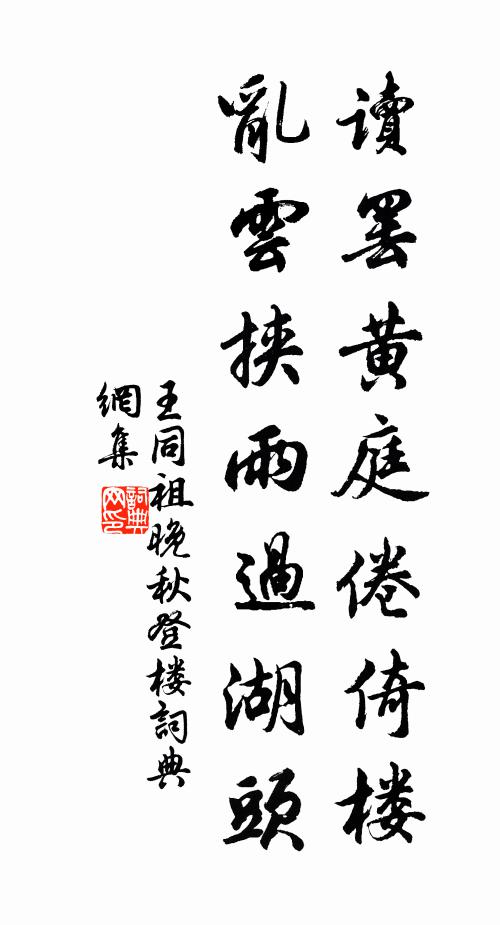 讀罢黄庭倦倚楼
亂雲挟雨過湖頭
王同祖晚秋登楼詞典
網集
詞典
网印